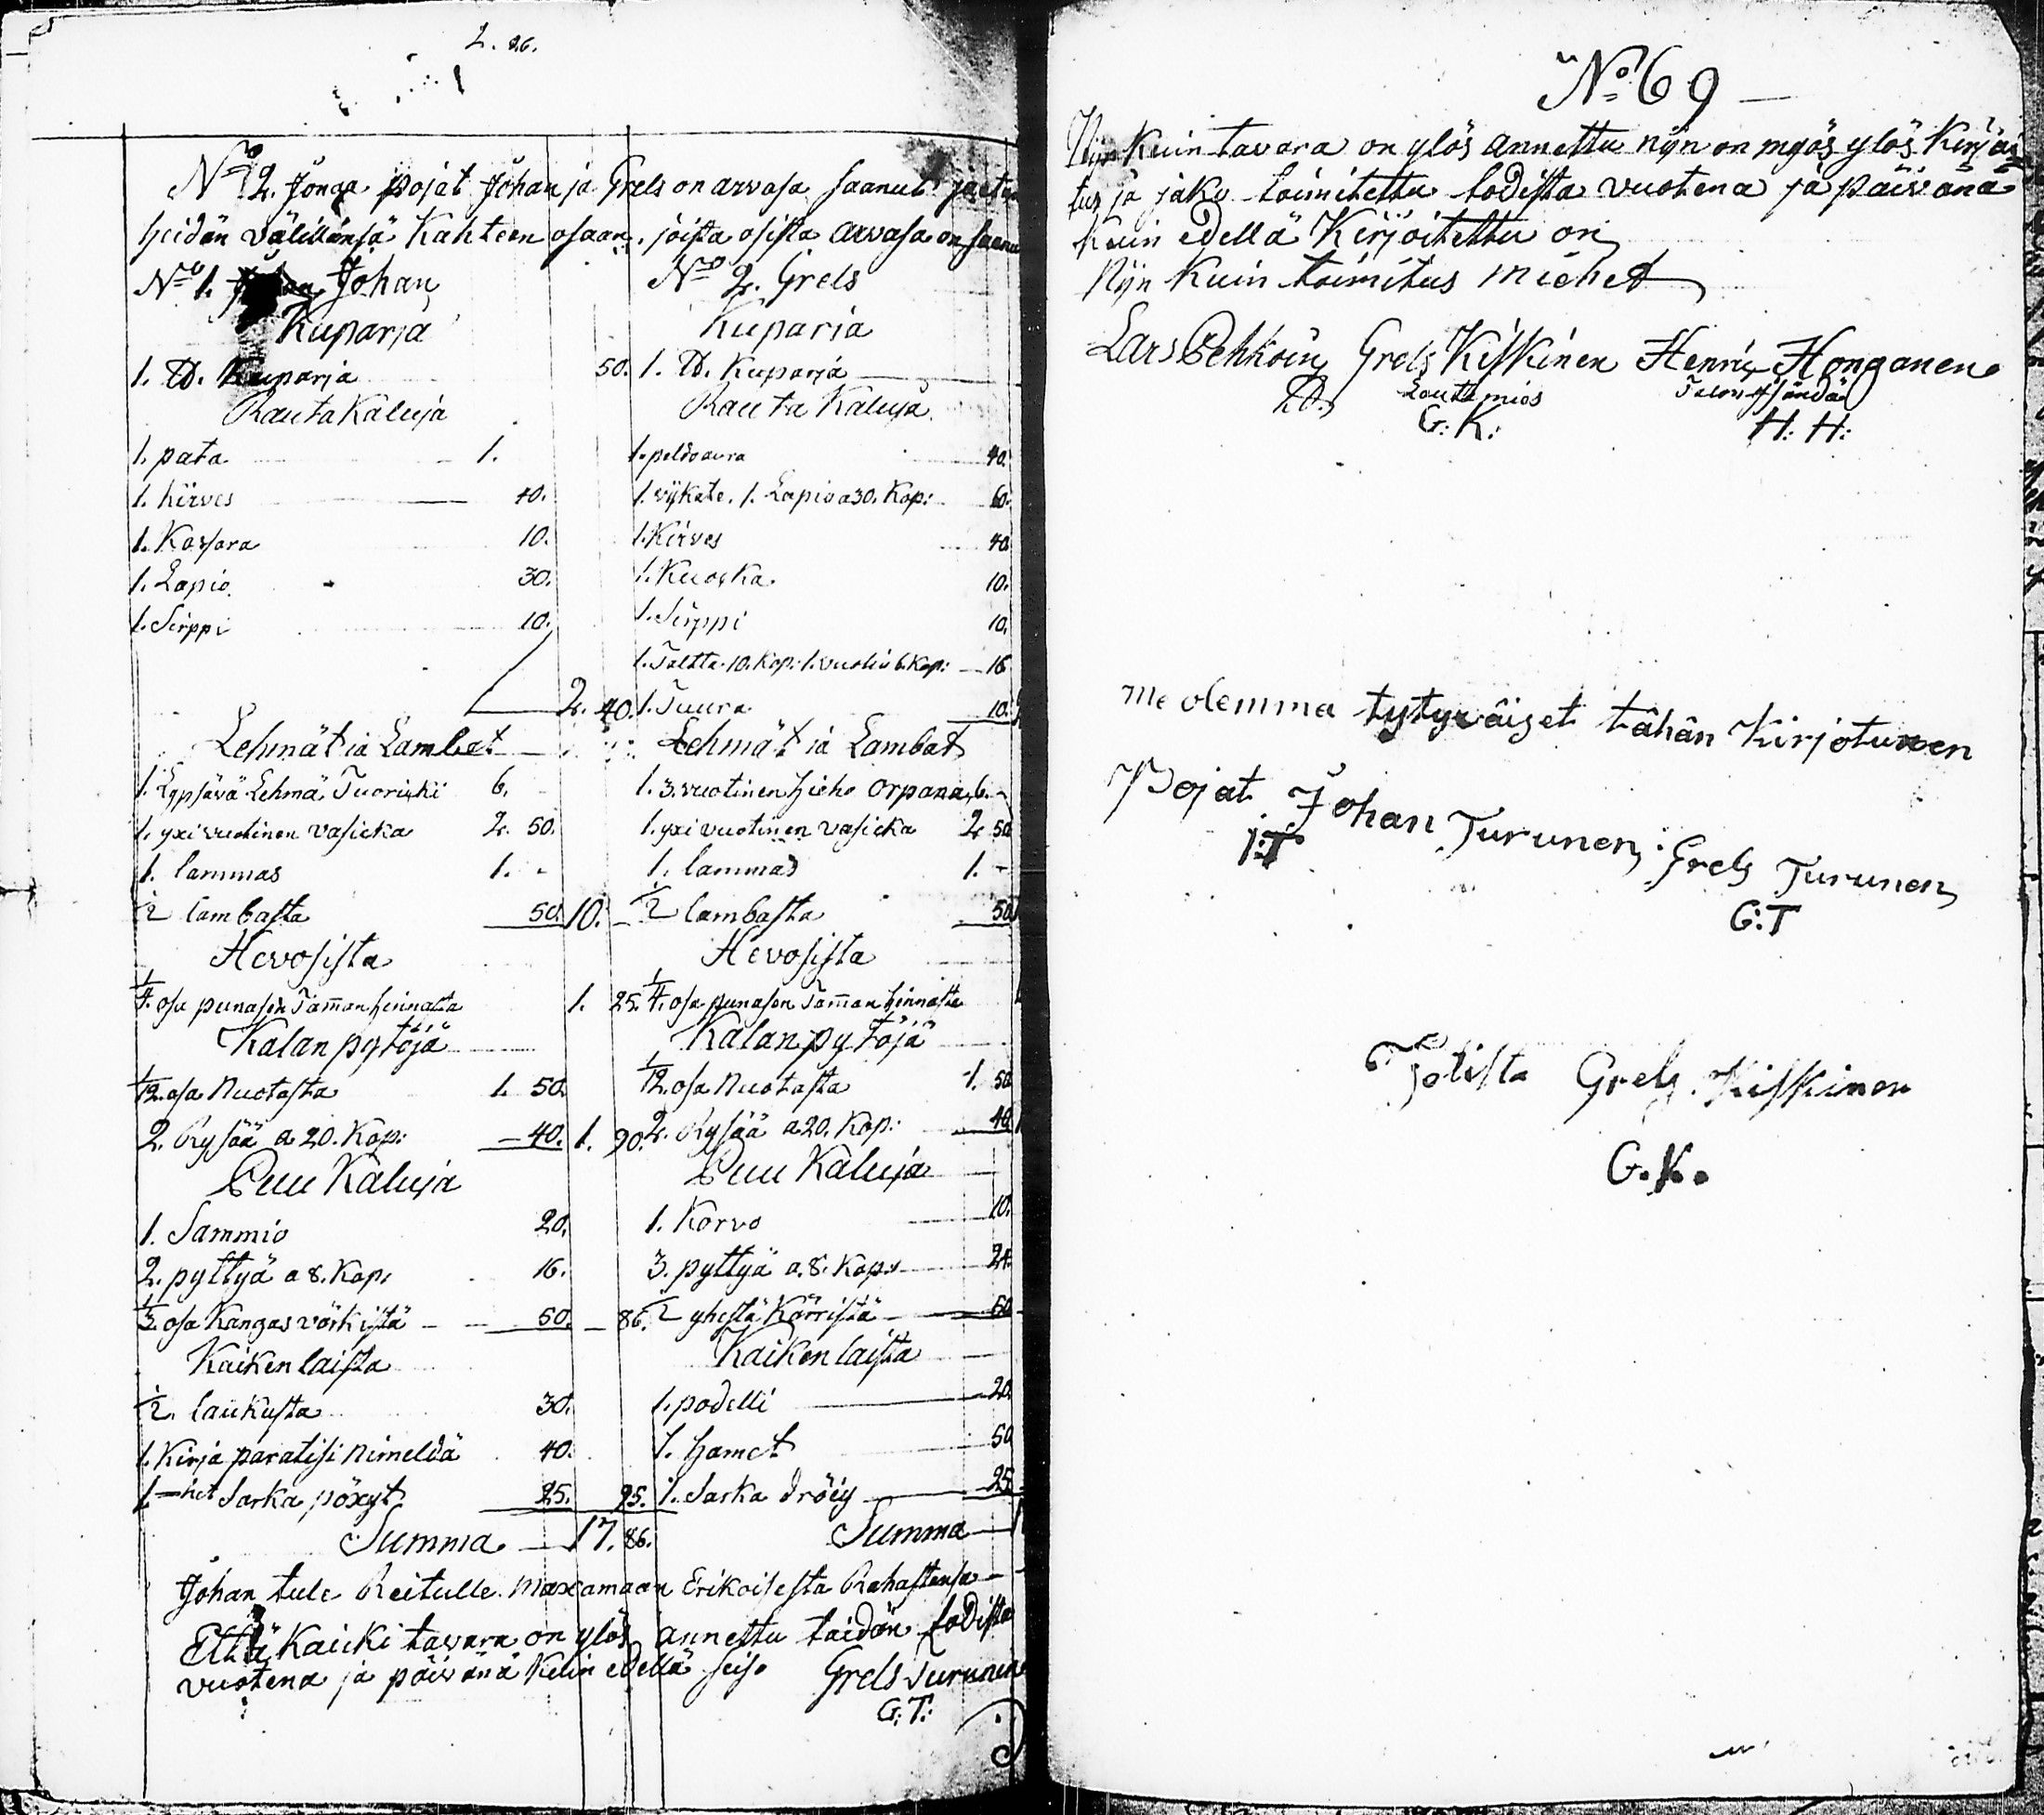 2. 26.
No 2. Jonga pojat Johan ja Grels on arvasa saanut jaetu
heidän välillänsä Kahteen osaan, joista osista arvasa on saanu
No 1. Johan
Kuparia
1. ℔. Kuparia 50.
Rauta Kaluja
1. pata 1.
1. kirves 40.
1. Kassara 10.
1. Lapio 30.
1. Sirppi 10.
2. 40.
Lehmät ja Lambat
1. Lypsävä Lehmä Tuoriki 6. -
1. yxi vuotinen vasicka 2. 50.
1. lammas 1. -
1/2 lambasta 50. 10. -
Hevosista
1/4. osa punasen Tamman hinnasta 1. 25.
Kalanpytöjä
1/2. osa Nuotasta 1. 50.
2. Rysää a 20. Kop: 40. 1. 90.
Puu Kaluja
1. Sammio 20.
2. pyttyä a 8. Kop: 16.
1/3. osa Kangas värkistä 50. - 86.
Kaikenlaista
1/2. laukusta 30.
1. Kirja paratisi nimeldä 40.
1. het Sarka pöxyt 25. 95.
Summa 17. 86.
No 2. Grels
Kuparia
1. ℔. Kuparia
Rauta Kaluja
1. peldoaura 40.
1. vijkate. 1. Lapio a 30. Kop: 60.
1. Kirves 40
1. Kuoska 10.
1. Sirppi 10.
1. Taltta 10. Kop: 1. vuolin 6 Kop: 16
1. Tuura 10.
Lehmät ja Lambat
1. 3. vuotinen hieho Orpana 6. -
1. yxi vuotinen vasicka 2 50
1. lammas 1. -
1/2 lambasta 50
Hevosista
1/4. osa punasen Tamman hinnasta
Kalanpytöjä
1/2. osa Nuotasta 1. 50
2. Rysää a 20. Kop: 40
Puu Kaluja
1. Korvo 10.
3. pyttyä a. 8. Kop: 24.
1/2 yhestä Kärristä 60
Kaikenlaista
1. podelli 20.
1. hamet 50
1. Sarka dröig 25
Summa
Johan tule Reitulle maxamaan Erikoisesta Rahastensa
Että Kaicki tavara on ylös annettu taidan todista
vuotena ja päivänä Kuin edellä seiso Grels Turunen
G: T:
No 69
Nijn Kuin tavara on ylös annettu nijn on myös ylös Kirjoi
tus ja jako toimitettu todista vuotena ja päivänä
kuin edellä Kirjoitettu on
Nijn Kuin toimitus miehet
Lars Pehkoin Grels Kiskinen Henric Honganen
Lautamios Talon Isändä
G: K: H: H:
me olemma tytyväiset tähän Kirjotuxen
Pojat Johan Turunen, Grels Turunen
I:T
G:T
Totista Grels Kiskinen
G. K.